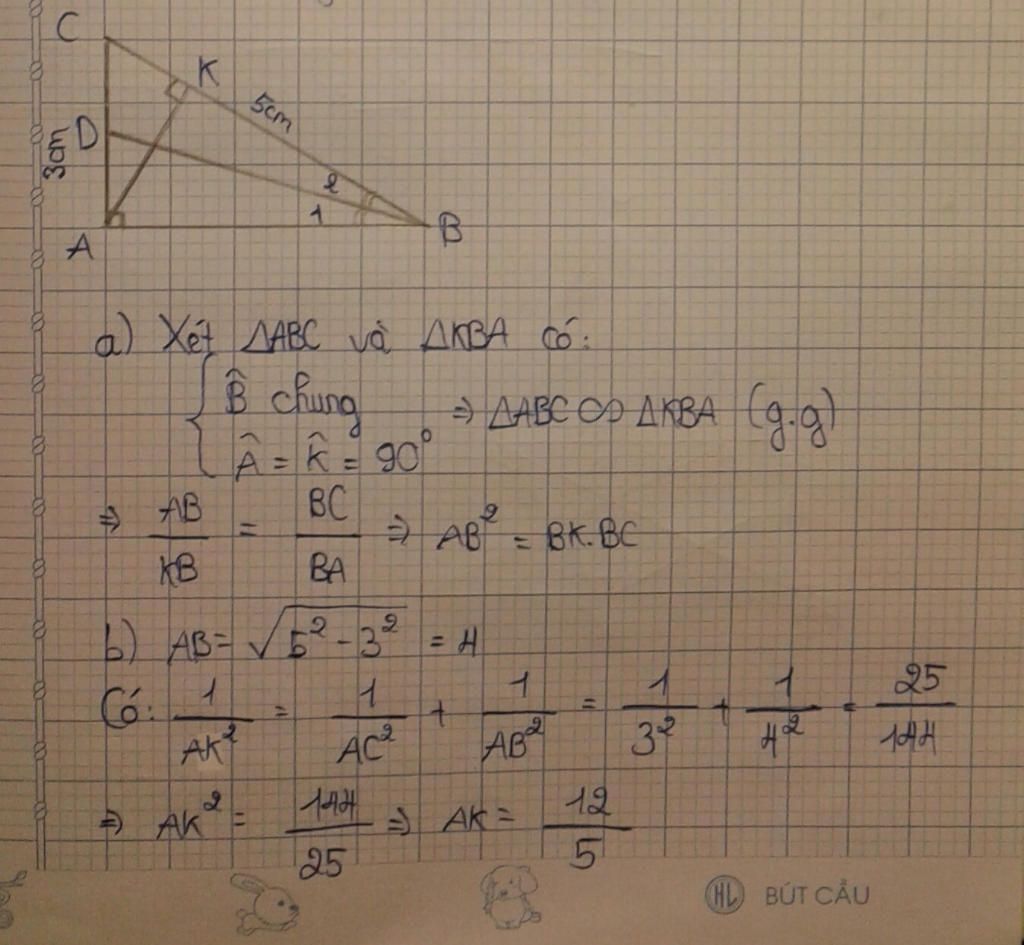 C
K
5cm
D
3cm
2
1
A
B
a) Xét ΔABC và ΔKBA có:
B̂ chung
⇒ ΔABC ∽ ΔKBA (g.g)
Â = K̂ = 90°
⇒ AB/KB = BC/BA ⇒ AB² = BK.BC
b) AB = √(5² - 3²) = 4
Có: 1/AK² = 1/AC² + 1/AB² = 1/3² + 1/4² = 25/144
⇒ AK² = 144/25 ⇒ AK = 12/5
HL BÚT CẦU